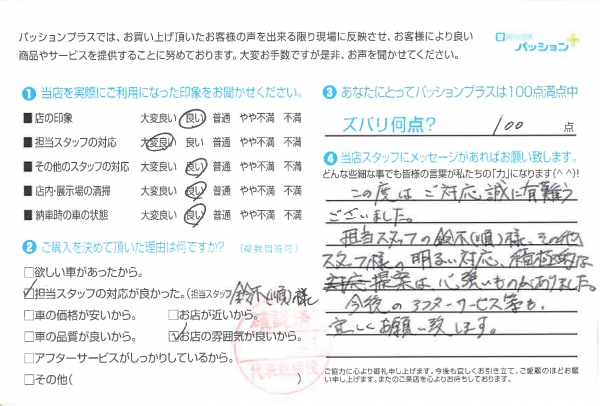 パッションプラスでは、お買い上げ頂いたお客様の声を出来る限り現場に反映させ、お客様により良い
商品やサービスを提供することに努めております。大変お手数ですが是非、お声を聞かせてください。
パッション+
1 当店を実際にご利用になった印象をお聞かせください。
■ 店の印象 大変良い 良い 普通 やや不満 不満
■ 担当スタッフの対応 大変良い 良い 普通 やや不満 不満
■ その他のスタッフの対応 大変良い 良い 普通 やや不満 不満
■ 店内・展示場の清掃 大変良い 良い 普通 やや不満 不満
■ 納車時の車の状態 大変良い 良い 普通 やや不満 不満
2 ご購入を決めて頂いた理由は何ですか? (複数回答可)
□欲しい車があったから。
☑担当スタッフの対応が良かった。(担当スタッフ 鈴木(順)様)
□車の価格が安いから。 □お店が近いから。
□車の品質が良いから。 ☑お店の雰囲気が良いから。
□アフターサービスがしっかりしているから。
□その他( )
確認済
代表取締役
3 あなたにとってパッションプラスは100点満点中
ズバリ何点? 100 点
4 当店スタッフにメッセージがあればお願い致します。
どんな些細な事でも皆様の言葉が私たちの「力」になります(^^)!
この度はご対応、誠に有難う
ございました。
担当スタッフの鈴木(順)様、その他
スタッフ様の明るい対応、積極的な
提案は心強いものがありました。
今後のアフターサービス等も、
宜しくお願い致します。
ご協力に心より御礼申し上げます。今後も宜しくお引き立て、ご愛顧のほどお願い申し上げます。またのご来店を心よりお待ちしております。